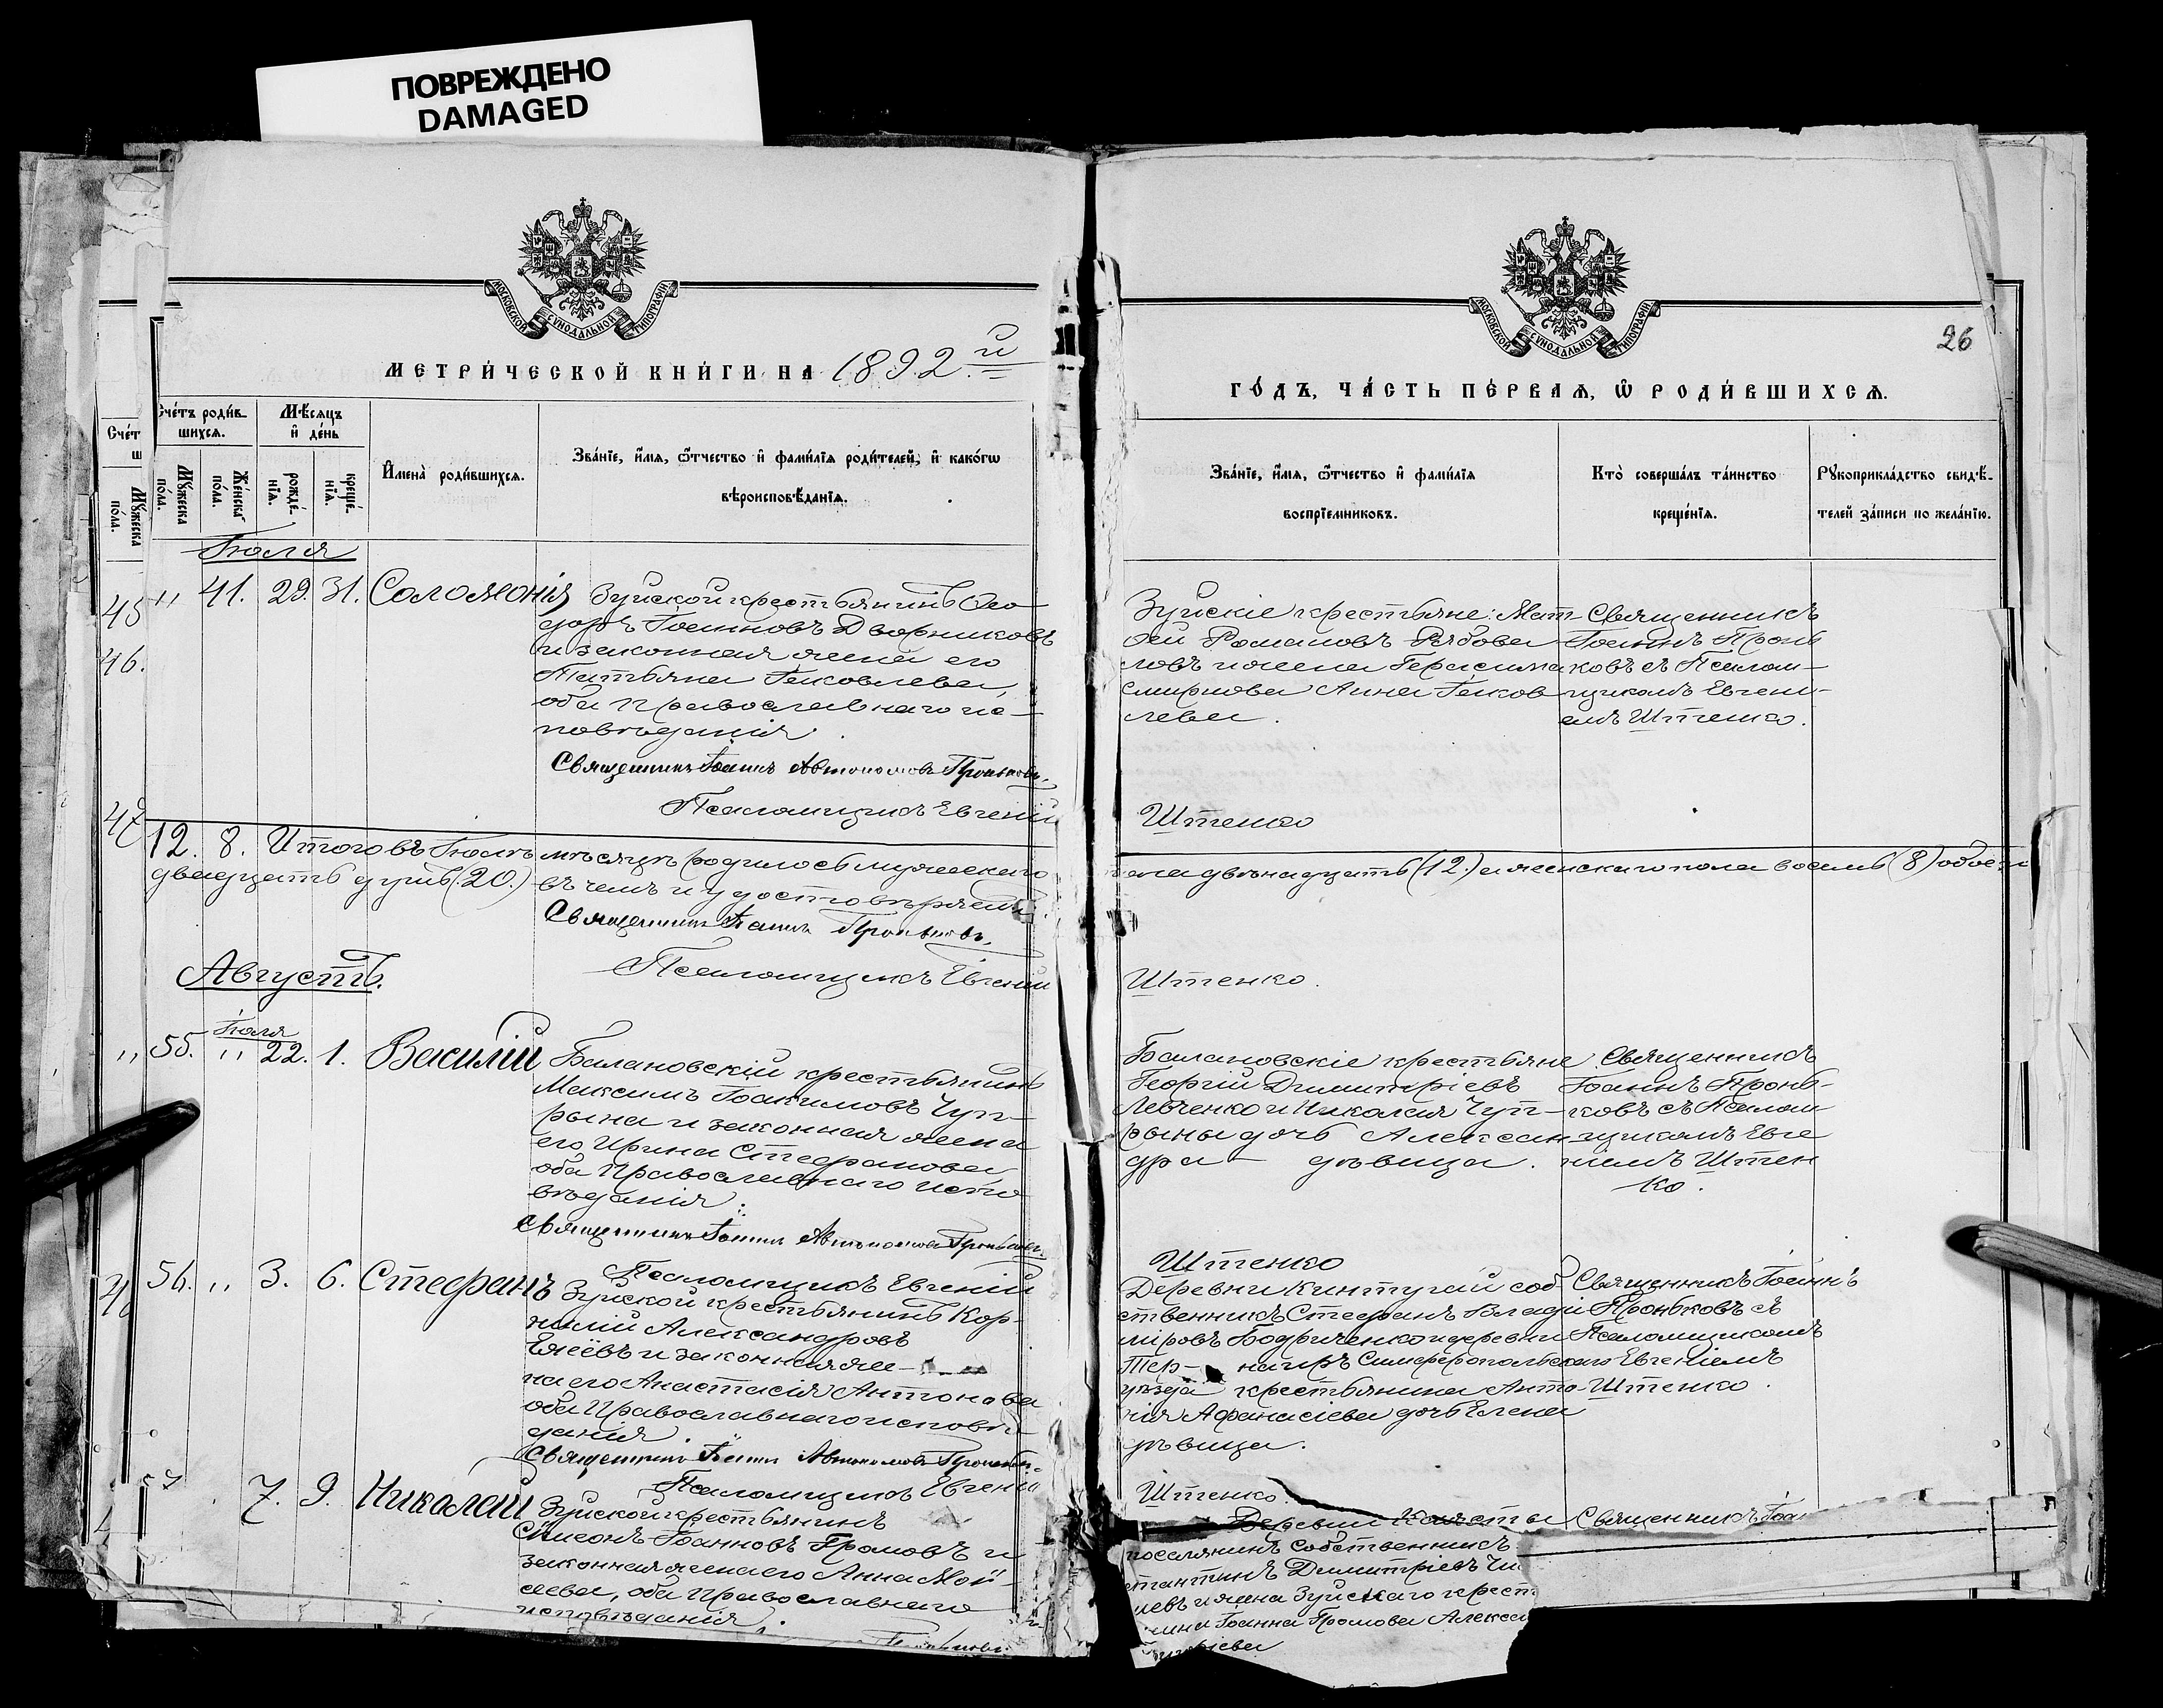 ПОВРЕЖДЕНО
DAMAGED
МОСКОВСКОЙ СѴНОДАЛЬНОЙ ТИПОГРАФІИ
МЕТРИ́ЧЕСКОЙ КНИ́ГИ НА 1892.й
Сче́тъ роди́в-
шихсѧ.
Мѣ́сѧцъ
и҆ де́нь
Мꙋ́жеска
по́ла.
Же́нска
по́ла.
рожде́-
нїѧ.
креще́-
нїѧ.
И҆мена̀ роди́вшихсѧ.
Зва́нїе, и҆́мѧ, ѻ҆́тчество и҆ фами́лїѧ роди́телей, и҆ како́гѡ
вѣроисповѣ́данїѧ.
Іюля
" 41. 29. 31. Соломонія
Зуйской крестьянинъ Ѳео
доръ Іоанновъ Дворниковъ
и законная жена его
Татьяна Іаковлева,
оба православнаго ис-
повѣданія.
Священникъ Іоаннъ Автономовъ Проньковъ.
Псаломщикъ Евгеній
12. 8. Итого въ Іюлѣ мѣсяцѣ родилось мужескаго
двадцать душъ (20.) въ чемъ и удостовѣряемъ
Священникъ Іоаннъ Проньковъ.
Псаломщикъ Евгеній
Августъ.
Іюля
55. " 22. 1. Василій
Балановскій крестьянинъ
Максимъ Іоакимовъ Чуп-
рына и законная жена
его Ирина Стефанова
оба Православнаго испо
вѣданія.
Священникъ Іоаннъ Автономовъ Проньковъ.
Псаломщикъ Евгеній
56. " 3. 6. Стефанъ
Зуйской крестьянинъ Кор-
нилій Александровъ
и законная же-
на его Анастасія Антонова
оба Православнаго исповѣ
данія.
Священникъ Іоаннъ Автономовъ Проньковъ.
Псаломщикъ Евгеній
57 7. 9. Николай
Зуйской крестьянинъ
Симеонъ Іоанновъ Громовъ и
законная жена его Анна Мои-
сеева, оба Православнаго
исповѣданія.
26
ГО́ДЪ, ЧА́СТЬ ПЕ́РВАѦ, Ѡ҆ РОДИ́ВШИХСѦ.
Зва́нїе, и҆́мѧ, ѻ҆́тчество и҆ фами́лїѧ
воспрїе́мниковъ.
Кто̀ соверша́лъ та́инство
креще́нїѧ.
Рꙋкоприкла́дство свидѣ́-
телей за́писи по жела́нїю.
Зуйскіе крестьяне: Мат-
ѳей Романовъ Рябова
Смирнова Анна Іаков
лева.
Священникъ
Іоаннъ Пронь
ковъ съ Псалом-
щикомъ Евгені-
емъ Штенко.
Штенко
пола двѣнадцать (12.) и женскаго пола восемь (8) обоего
Штенко.
Балановскіе крестьяне
Георгій Димитріевъ
Левченко и Николая Чуп-
рыны дочь Алексан
дра дѣвица.
Священникъ
Іоаннъ Пронь-
ковъ съ Псалом
щикомъ Евге
ніемъ Штен
ко.
Штенко
Деревни Кинтугай соб
ственникъ Стефанъ Влади
міровъ Бодриченко и деревни
Тер- наиръ Симферопольскаго
уѣзда крестьянина Анто-
нія Афанасіева дочь Елена
дѣвица.
Священникъ Іоаннъ
Проньковъ съ
Псаломщикомъ
Евгеніемъ
Штенко.
Штенко.
Деревни
поселянинъ собственникъ
стантинъ Димитріевъ
и жена Зуйскаго крест
Іоанна Громова Алекса
Священникъ